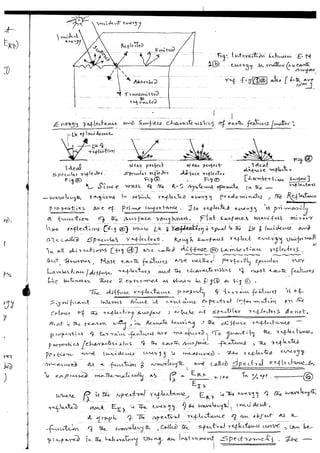 Incident energy
Incident energy
Reflected
Emitted
Fig: Interaction between E-M energy & matter
Absorbed
Transmitted
Energy reflectance and Surface characteristics of earth features/matter:
∠ of Incidence
∠ of reflection
Ideal Specular reflector. Fig (a)
near perfect Specular reflector Fig (b)
near perfect diffuse reflector Fig (c)
Ideal diffuse reflector (Lambertian Surface)
Since most of the R-S systems operate in the
wavelength regions in which reflected energy predominates, the Reflectance
properties are of prime importance. The reflected energy is primarily
a function of the surface roughness. Flat surfaces manifest mirror
like reflections (fig a) where ∠ of reflection is equal to the ∠ of incidence and
are called Specular reflectors. Rough surfaces reflect energy uniformly
in all directions (fig d) are called diffuse (or) Lambertian reflectors.
But however, Most earth features are neither perfectly specular nor
Lambertian/diffuse reflectors and the characteristics of most earth features
lie between these 2 extremes as shown in fig b & fig c.
The diffuse reflectance property of terrain features is of
significant interest since it contains spectral information on the
colour of the reflecting surface; where as specular reflectors do not,
that is the reason why, in remote sensing, the diffuse reflectance
properties of terrain features are measured. To quantify the reflectance
properties/characteristics of the earth surface features, the reflected
portion and incidence energy is measured. The reflected energy
measured as a function of wavelength are called spectral reflectance &
is expressed mathematically as
where is the spectral reflectance, is the energy of the wavelength
reflected and is the energy of the wavelength, incident.
A graph of the spectral reflectance of an object as a
function of the wavelength, called the spectral reflectance curve, can be
prepared in the laboratory using an instrument Spectrometer. The